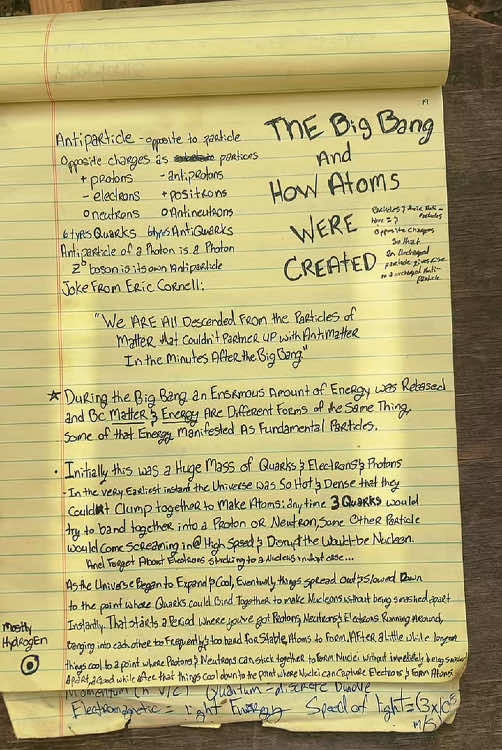 Antiparticle - opposite to particle
Opposite charges as particles
+ protons - antiprotons
- electrons + positrons
0 neutrons 0 Antineutrons
6 types Quarks 6 types AntiQuarks
Antiparticle of a Photon is a Photon
Z⁰ boson is its own Antiparticle
Joke From Eric Cornell:
THE Big Bang
And
How Atoms
WERE
CREATED
Opposite charges
So that
an Uncharged
particle gives rise
to a uncharged Anti-
Particle
"We ARE All Descended From the Particles of
Matter that Couldn't Partner up with Antimatter
In the Minutes After the Big Bang"
☆ During the Big Bang an Enormous Amount of Energy was Released
and Bc Matter & Energy Are Different Forms of the Same Thing,
Some of that Energy Manifested As Fundamental Particles.
• Initially this was a Huge Mass of Quarks & Electrons & Photons
- In the very Earliest instant the Universe was So Hot & Dense that they
Couldn't Clump together to Make Atoms: any time 3 Quarks would
try to band together into a Proton or Neutron, Some Other Particle
would Come Screaming in @ High Speed & Disrupt the Would-be Nucleon.
And Forget About Electrons sticking to a Nucleus in that case...
As the Universe Began to Expand & Cool, Eventually things spread Out & Slowed Down
to the point where Quarks could Bind Together to make Nucleons without being smashed apart
Instantly. That starts a Period where you've got Protons, Neutrons & Electrons Running Around,
banging into each other too Frequently & too hard for Stable Atoms to Form. After a little while longer
things cool to a point where Protons & Neutrons can stick together to Form Nuclei without immediately being smashed
apart, a while After that things cool down to the point where Nuclei can Capture Electrons & Form Atoms
Mostly
Hydrogen
Momentum Quantum = discrete bundle
Electromagnetic = light Energy Speed of light = (3x10⁸
m/s)